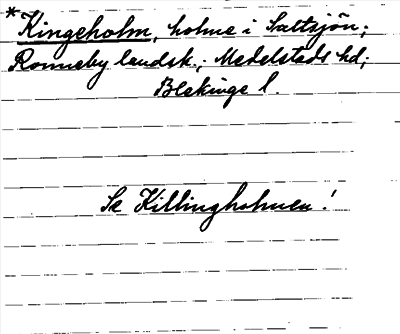 *Kingeholm, holme i Saltsjön;
Ronneby landsk.; Medelstads hd;
Blekinge l.
Se Killingholmen!